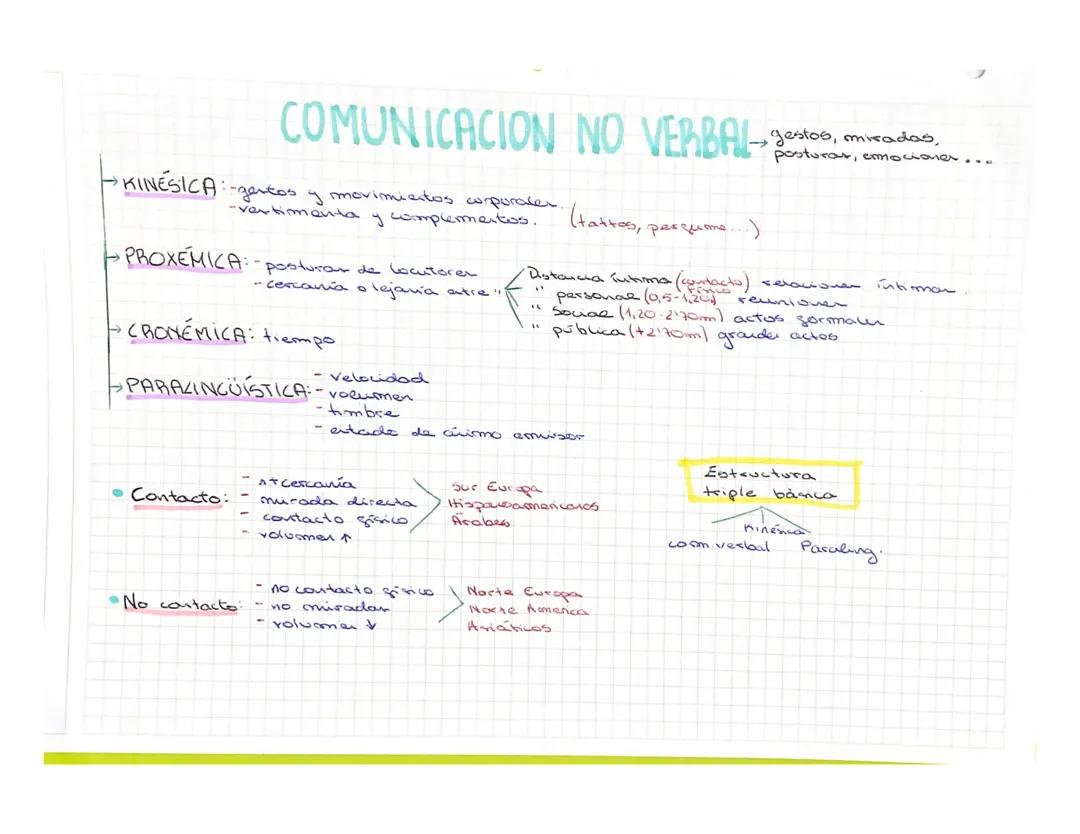 COMUNICACION NO VERBAL → gestos, miradas,
posturas, emociones...
→ KINÉSICA: - gestos y movimientos corporales.
- vestimenta y complementos. (tattos, perfume...)
→ PROXÉMICA: - posturas de locutores
- cercanía o lejanía entre "
Distancia íntima (contacto físico) relaciones íntimas.
" personal (0,5-1,20) reuniones
" social (1,20-2'70m) actos formales
" pública (+2'70m) grandes actos
→ CRONÉMICA: tiempo
→ PARALINGÜÍSTICA: - velocidad
- volumen
- timbre
- estado de ánimo emisor
• Contacto: - ++cercanía
- mirada directa
- contacto físico
- volumen ↑
Sur Europa
Hispanoamericanos
Árabes
Estructura
triple básica
Kinésica
com. verbal Paraling.
• No contacto: - no contacto físico
- no miradas
- volumen ↓
Norte Europa
Norte America
Asiáticos